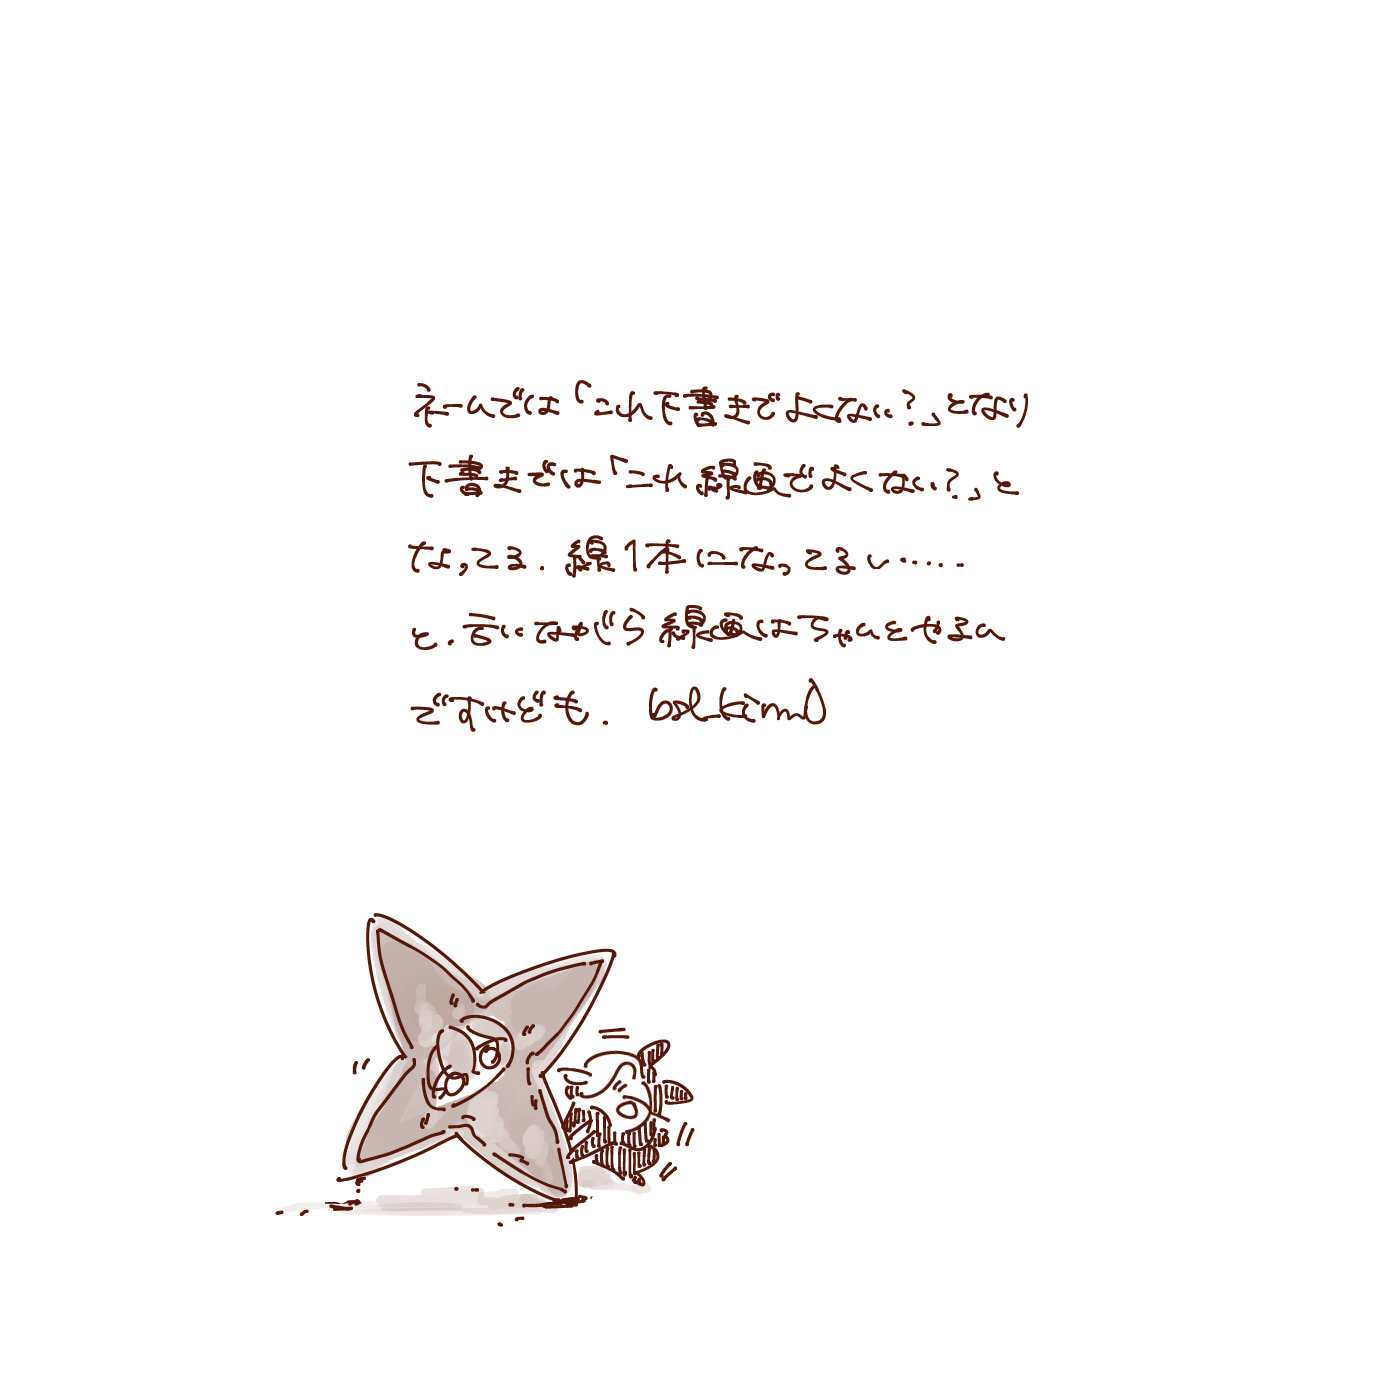 ネームでは「これ下書きでよくない?」となり
下書きでは「これ線画でよくない?」と
なってる. 線1本になってるし・・・・・
と. 言いながら線画はちゃんとやるん
ですけども.